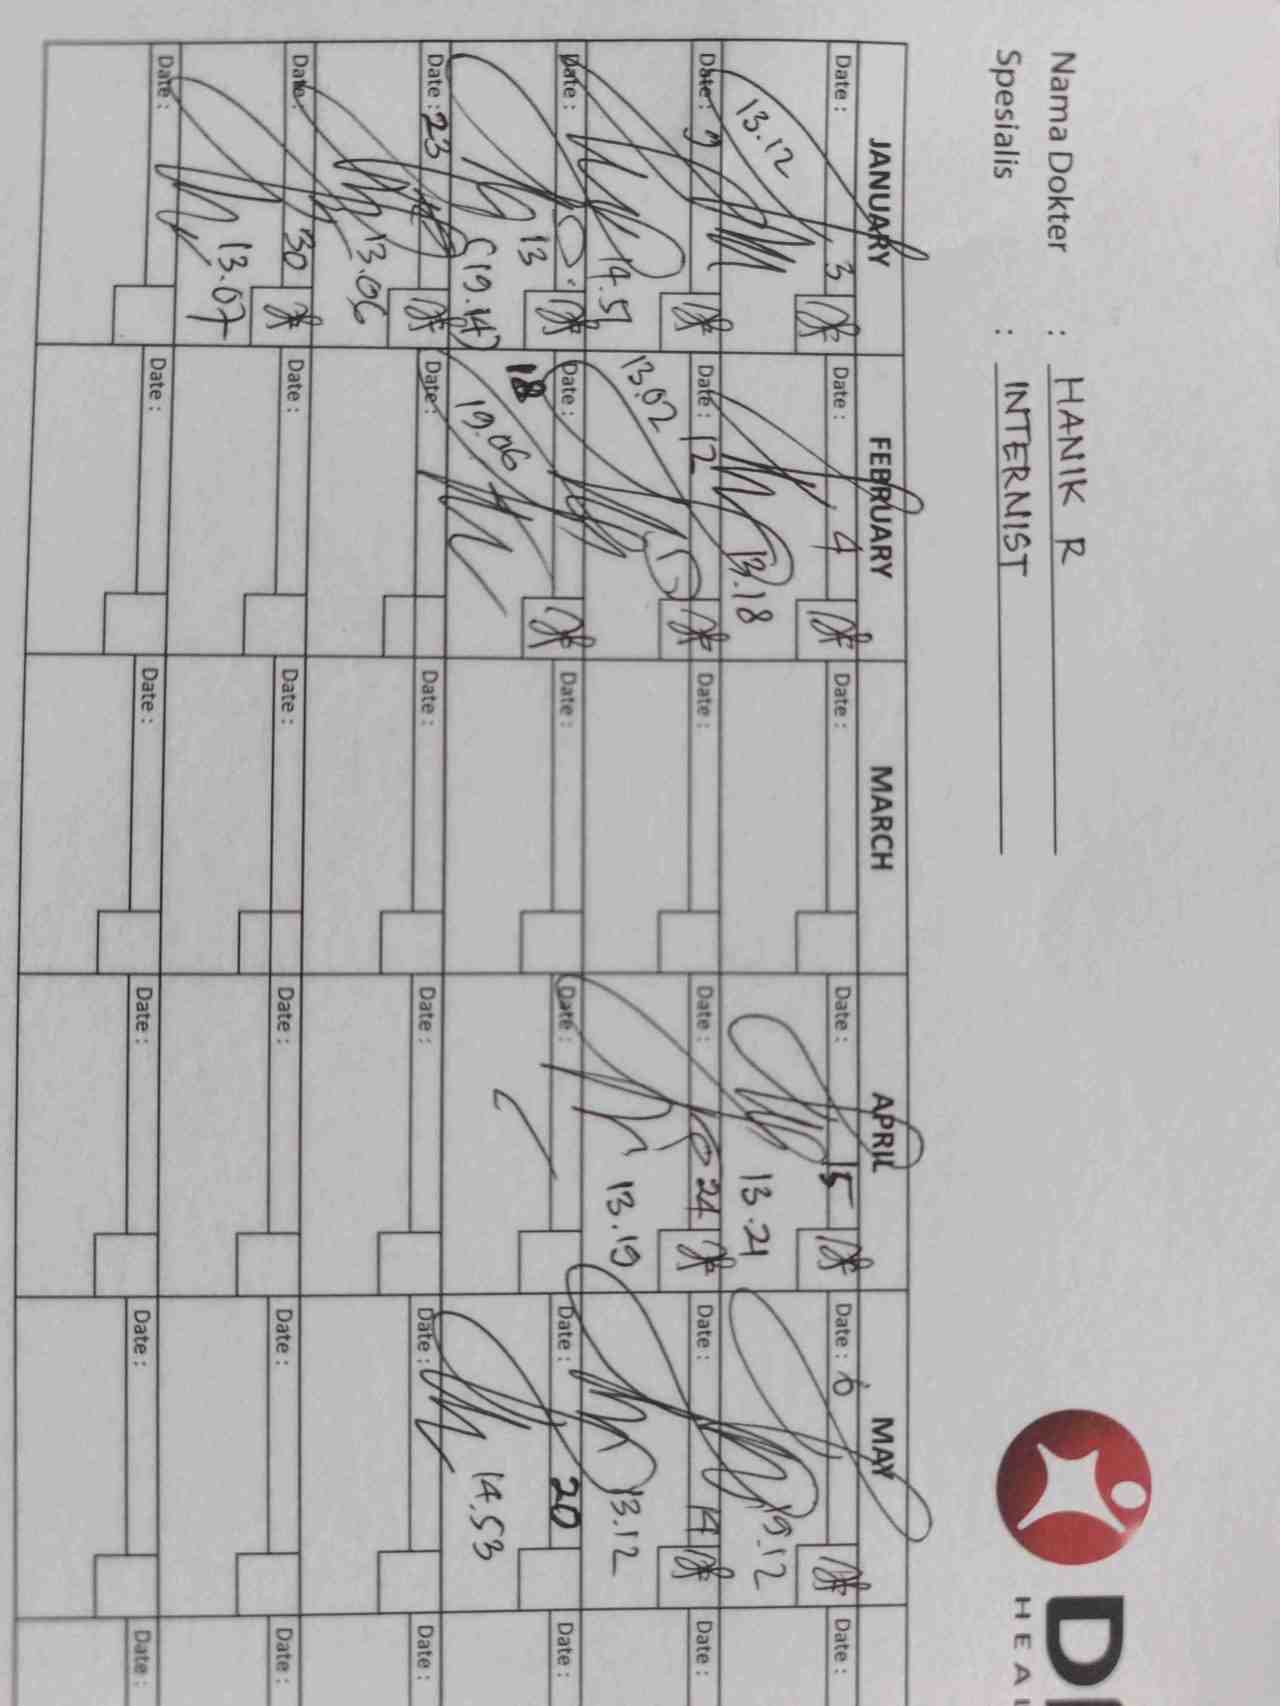 Nama Dokter : HANIK R
Spesialis : INTERNIST
HEA
JANUARY FEBRUARY MARCH APRIL MAY
Date : 3 Date : 4 Date : Date : 15 Date : 6 Date :
13.12 13.18 13.21 19.12
Date : 9 Date : 12 Date : Date : 24 Date : 14 Date :
14.51 13.02 13.19 13.12
Date : Date : 18 Date : Date : Date : 20 Date :
13 19.06 14.53
Date : 23 Date : Date : Date : Date : Date :
13.06
Date : 30 Date : Date : Date : Date : Date :
13.07
Date : Date : Date : Date : Date : Date :